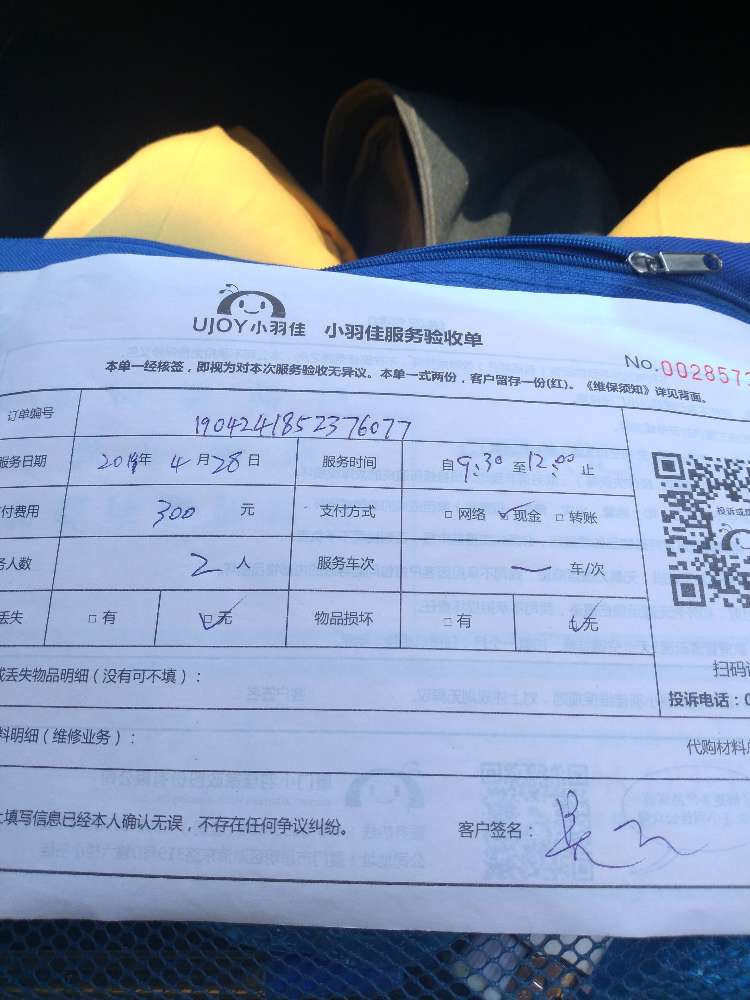 UJOY小羽佳 小羽佳服务验收单
No.002857
本单一经核签，即视为对本次服务验收无异议。本单一式两份，客户留存一份(红)。《维保须知》详见背面。
订单编号 1904241852376077
服务日期 2019年 4月28日 服务时间 自9:30至12:00止
付费用 300 元 支付方式 □网络 ☑现金 □转账
人数 2人 服务车次 一 车/次
丢失 □有 ☑无 物品损坏 □有 ☑无
投诉或
丢失物品明细（没有可不填）：
扫码
投诉电话：0
料明细（维修业务）：
代购材料
填写信息已经本人确认无误，不存在任何争议纠纷。 客户签名：